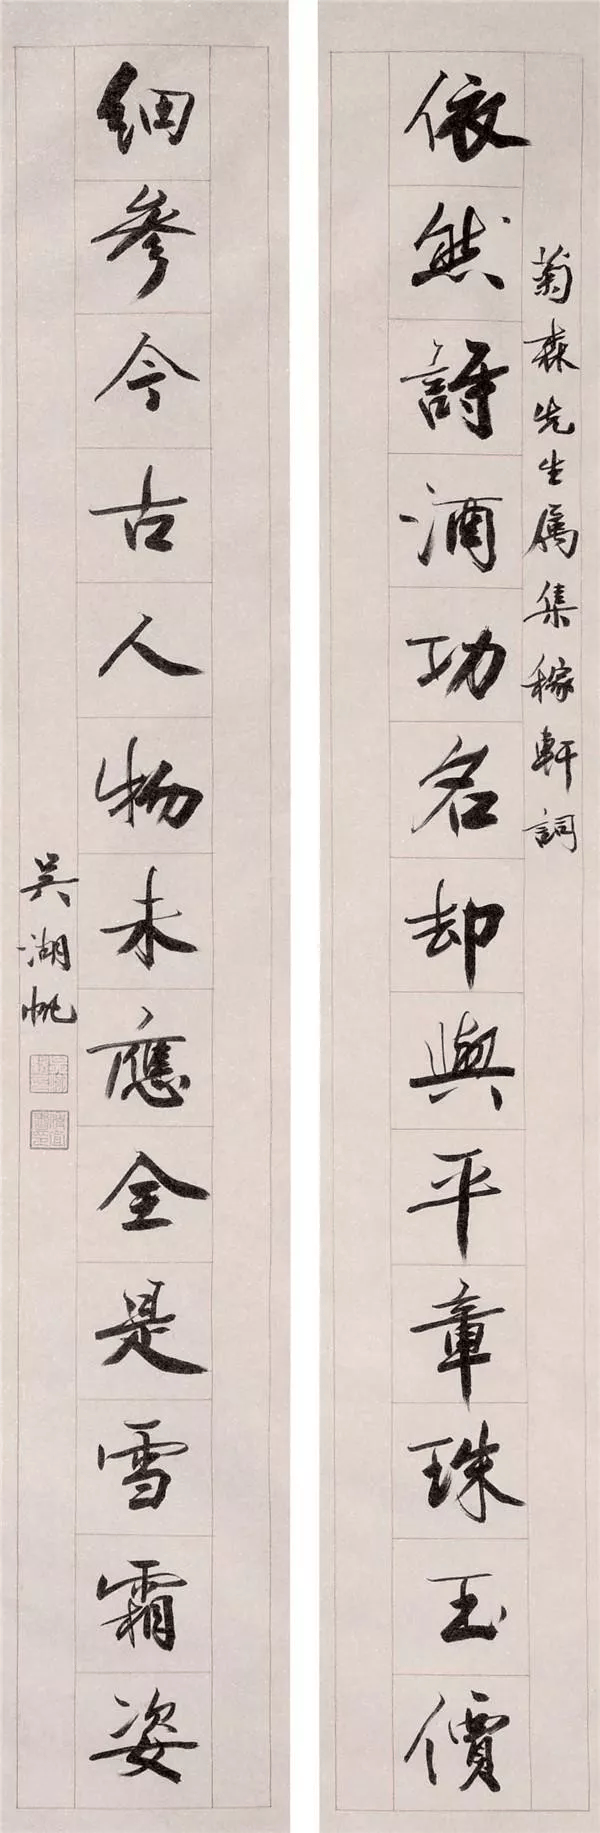 菊森先生属集稼軒詞
依然詩酒功名却與平章珠玉價
細參今古人物未應全是雪霜姿
吳湖帆